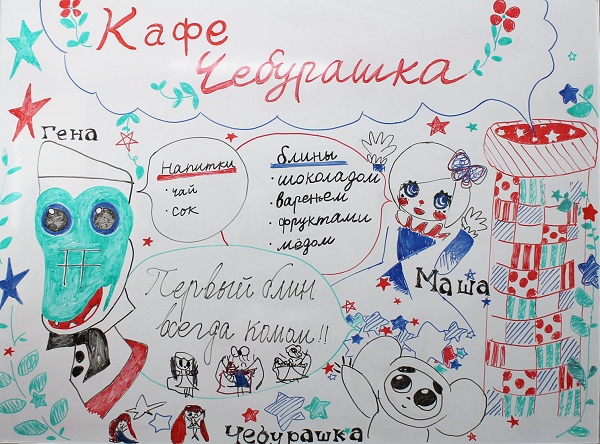 Кафе
Чебурашка
Гена
Напитки
· чай
· сок
блины
· шоколадом
· вареньем
· фруктами
· мёдом
Маша
Первый блин
всегда комом!!
Чебурашка